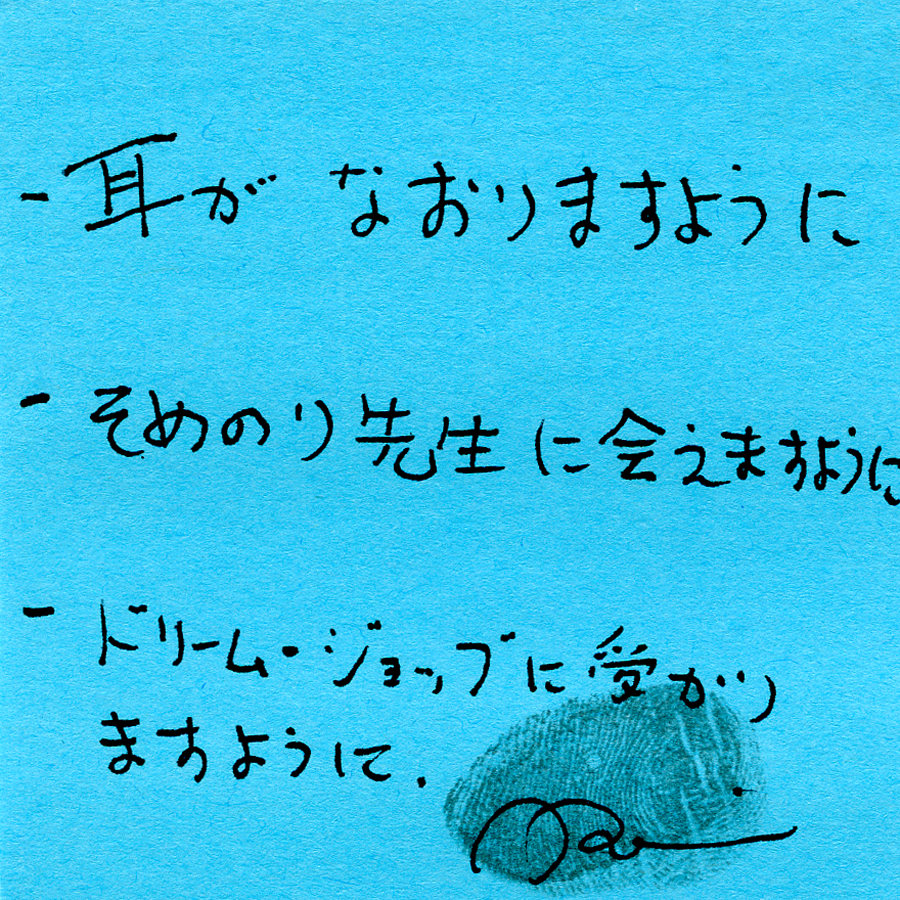 - 耳が なおりますように
- そめのり先生に会えますように
- ドリーム・ジョップに受がり
ますように.